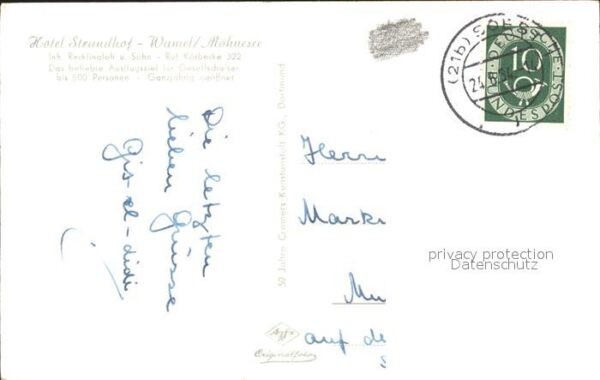 Hotel Strandhof - Wamel/Möhnesee
Inh. Recklinaloh u. Sohn - Ruf Körbecke 322
Das beliebte Ausflugsziel für Gesellschaften
bis 500 Personen - Ganzjährig geöffnet
Die letzten
lieben Grüsse
50 Jahre Cramers Kunstanstalt KG., Dortmund
(21b) SOEST
DEUTSCHE
BUNDESPOST
10
Herrn
Mark
auf de
Agfa
Originalfoto
privacy protection
Datenschutz